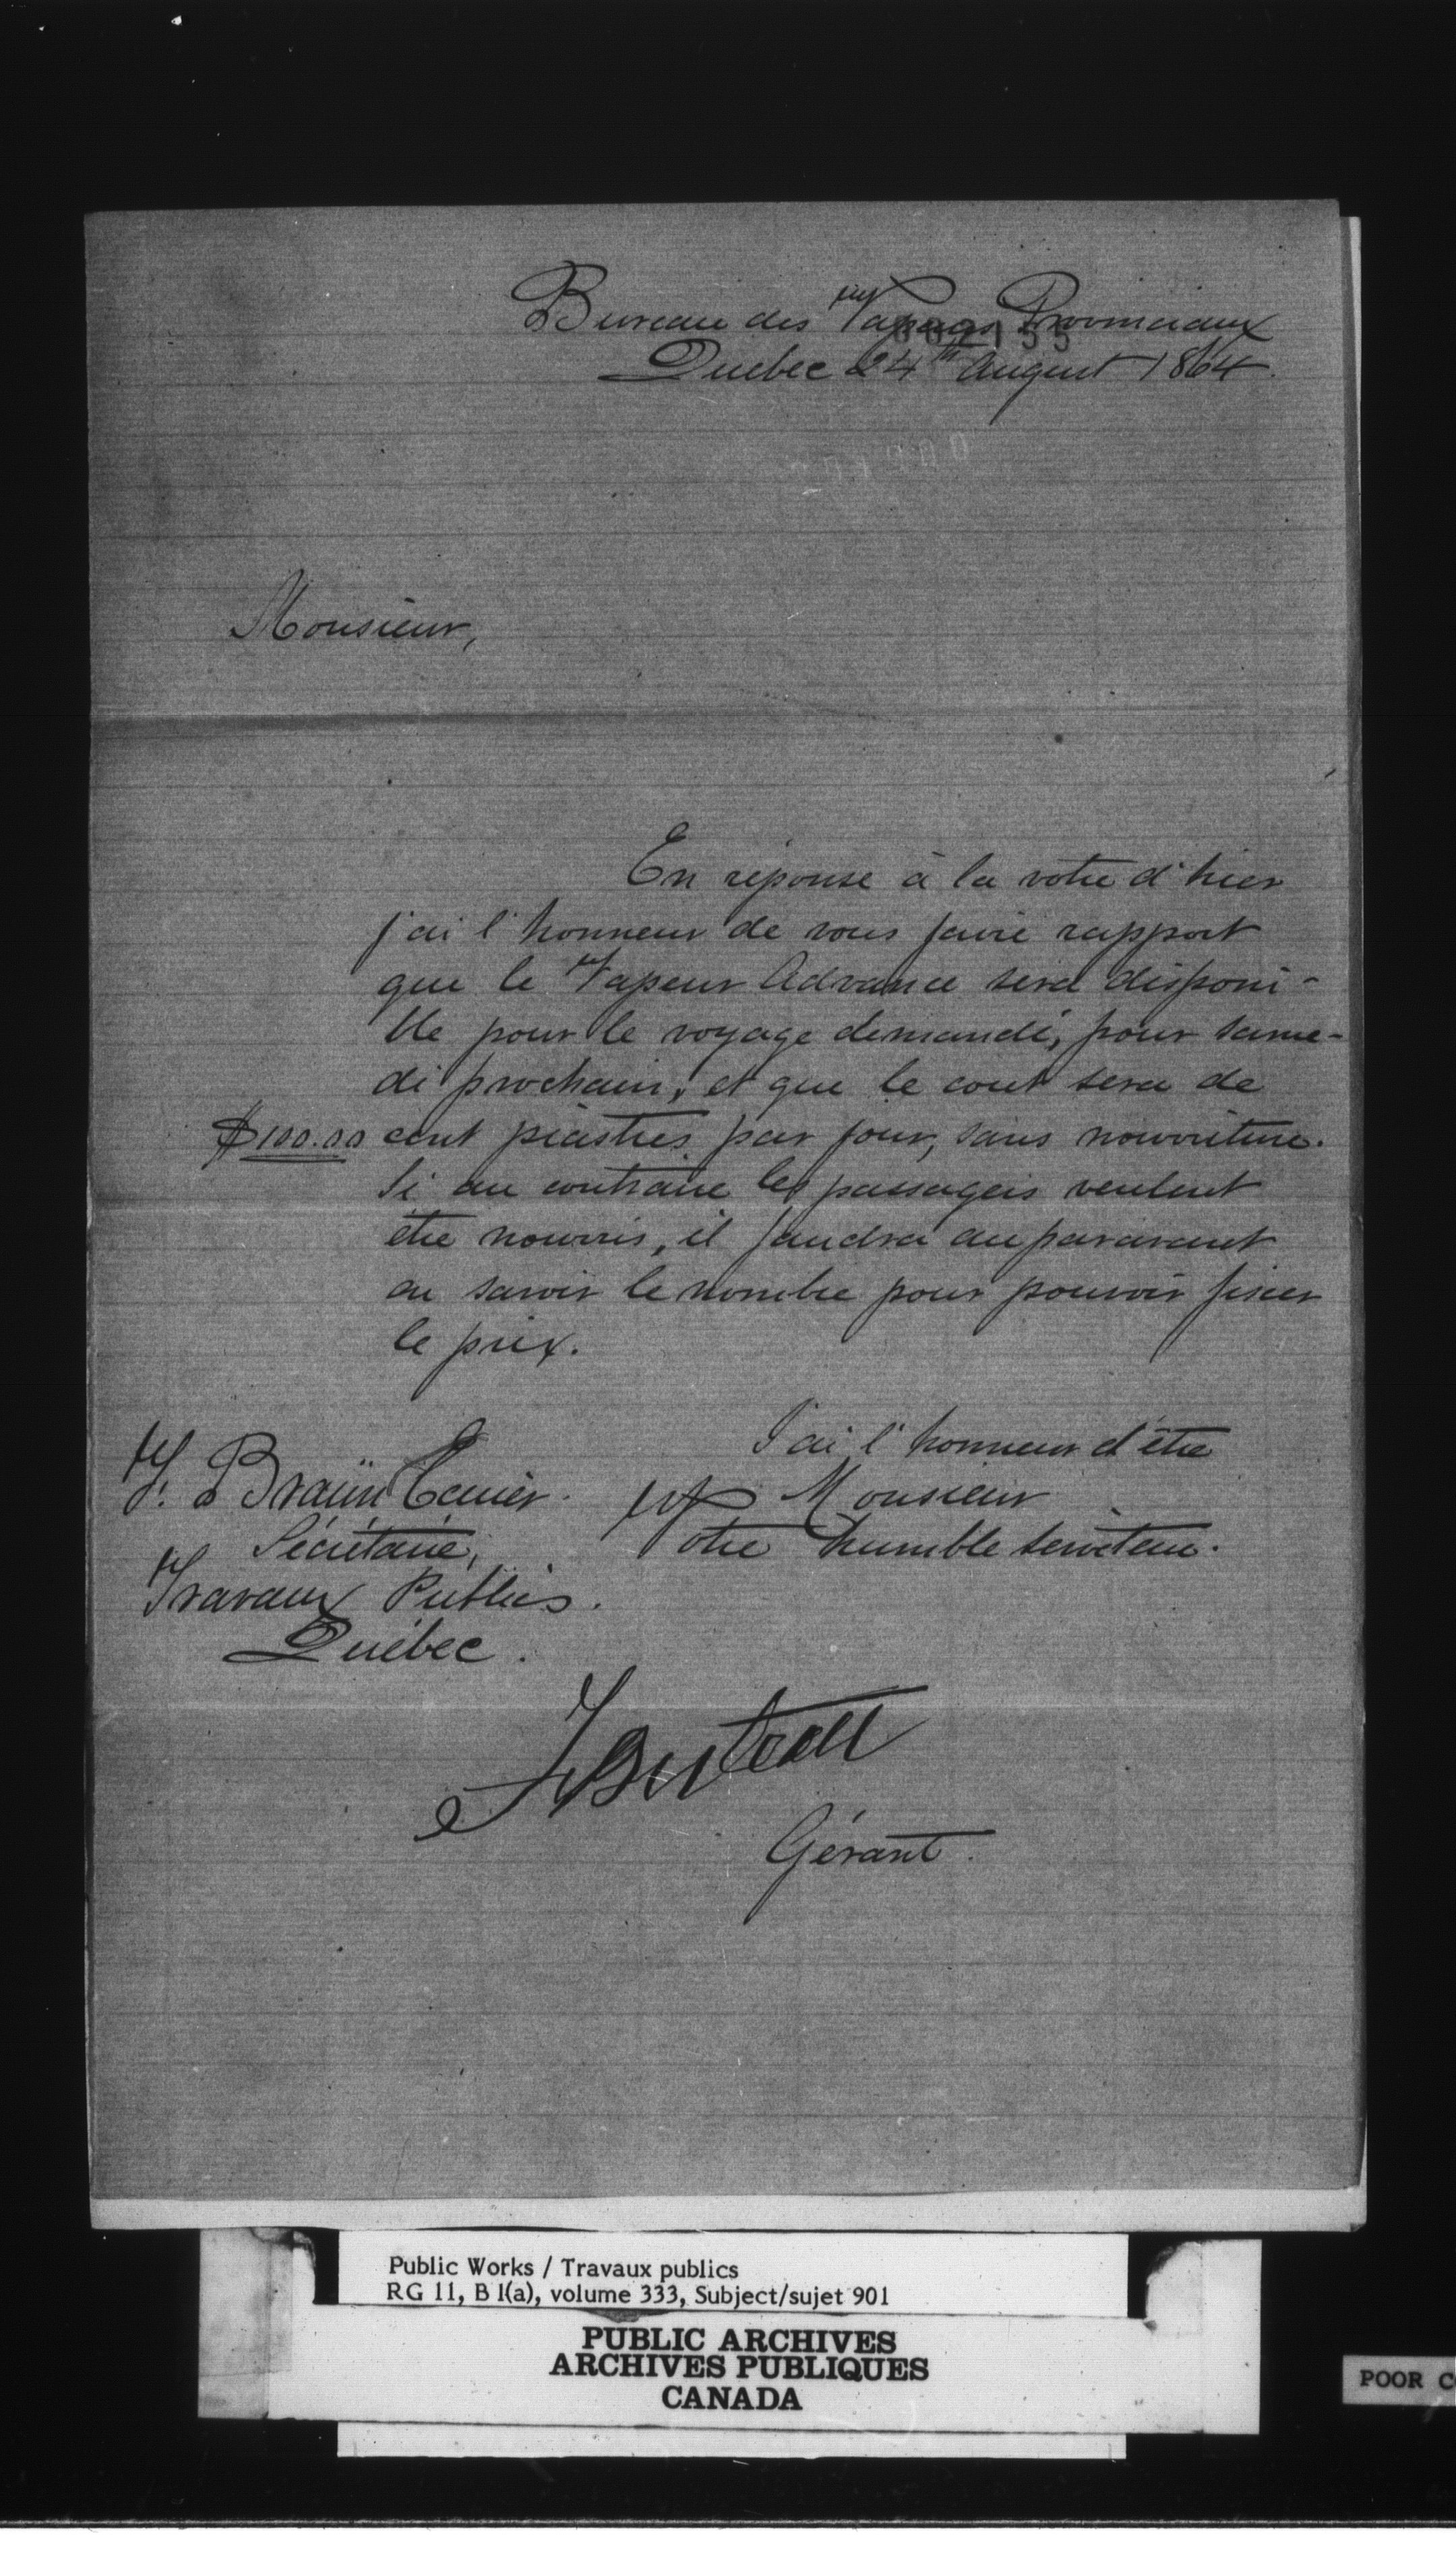 Bureau des Vapeurs Provinciaux
Quebec 24th August 1864.
Monsieur,
En réponse à la votre d'hier
j'ai l'honneur de vous faire rapport
que le Vapeur Advance sera disponi-
ble pour le voyage demandé, pour same-
di prochain, et que le cout sera de
$100.00 cent piastres par jour, sans nourriture.
Si au contraire les passagers veulent
être nourris, il faudra auparavant
en savoir le nombre pour pouvoir fixer
le prix.
J'ai l'honneur d'être
Monsieur
Votre humble serviteur.
F. Braün
Sécrétaire,
Travaux Publics.
Québec.
Gérant.
Public Works / Travaux publics
RG 11, B 1(a), volume 333, Subject/sujet 901
PUBLIC ARCHIVES
ARCHIVES PUBLIQUES
CANADA
POOR